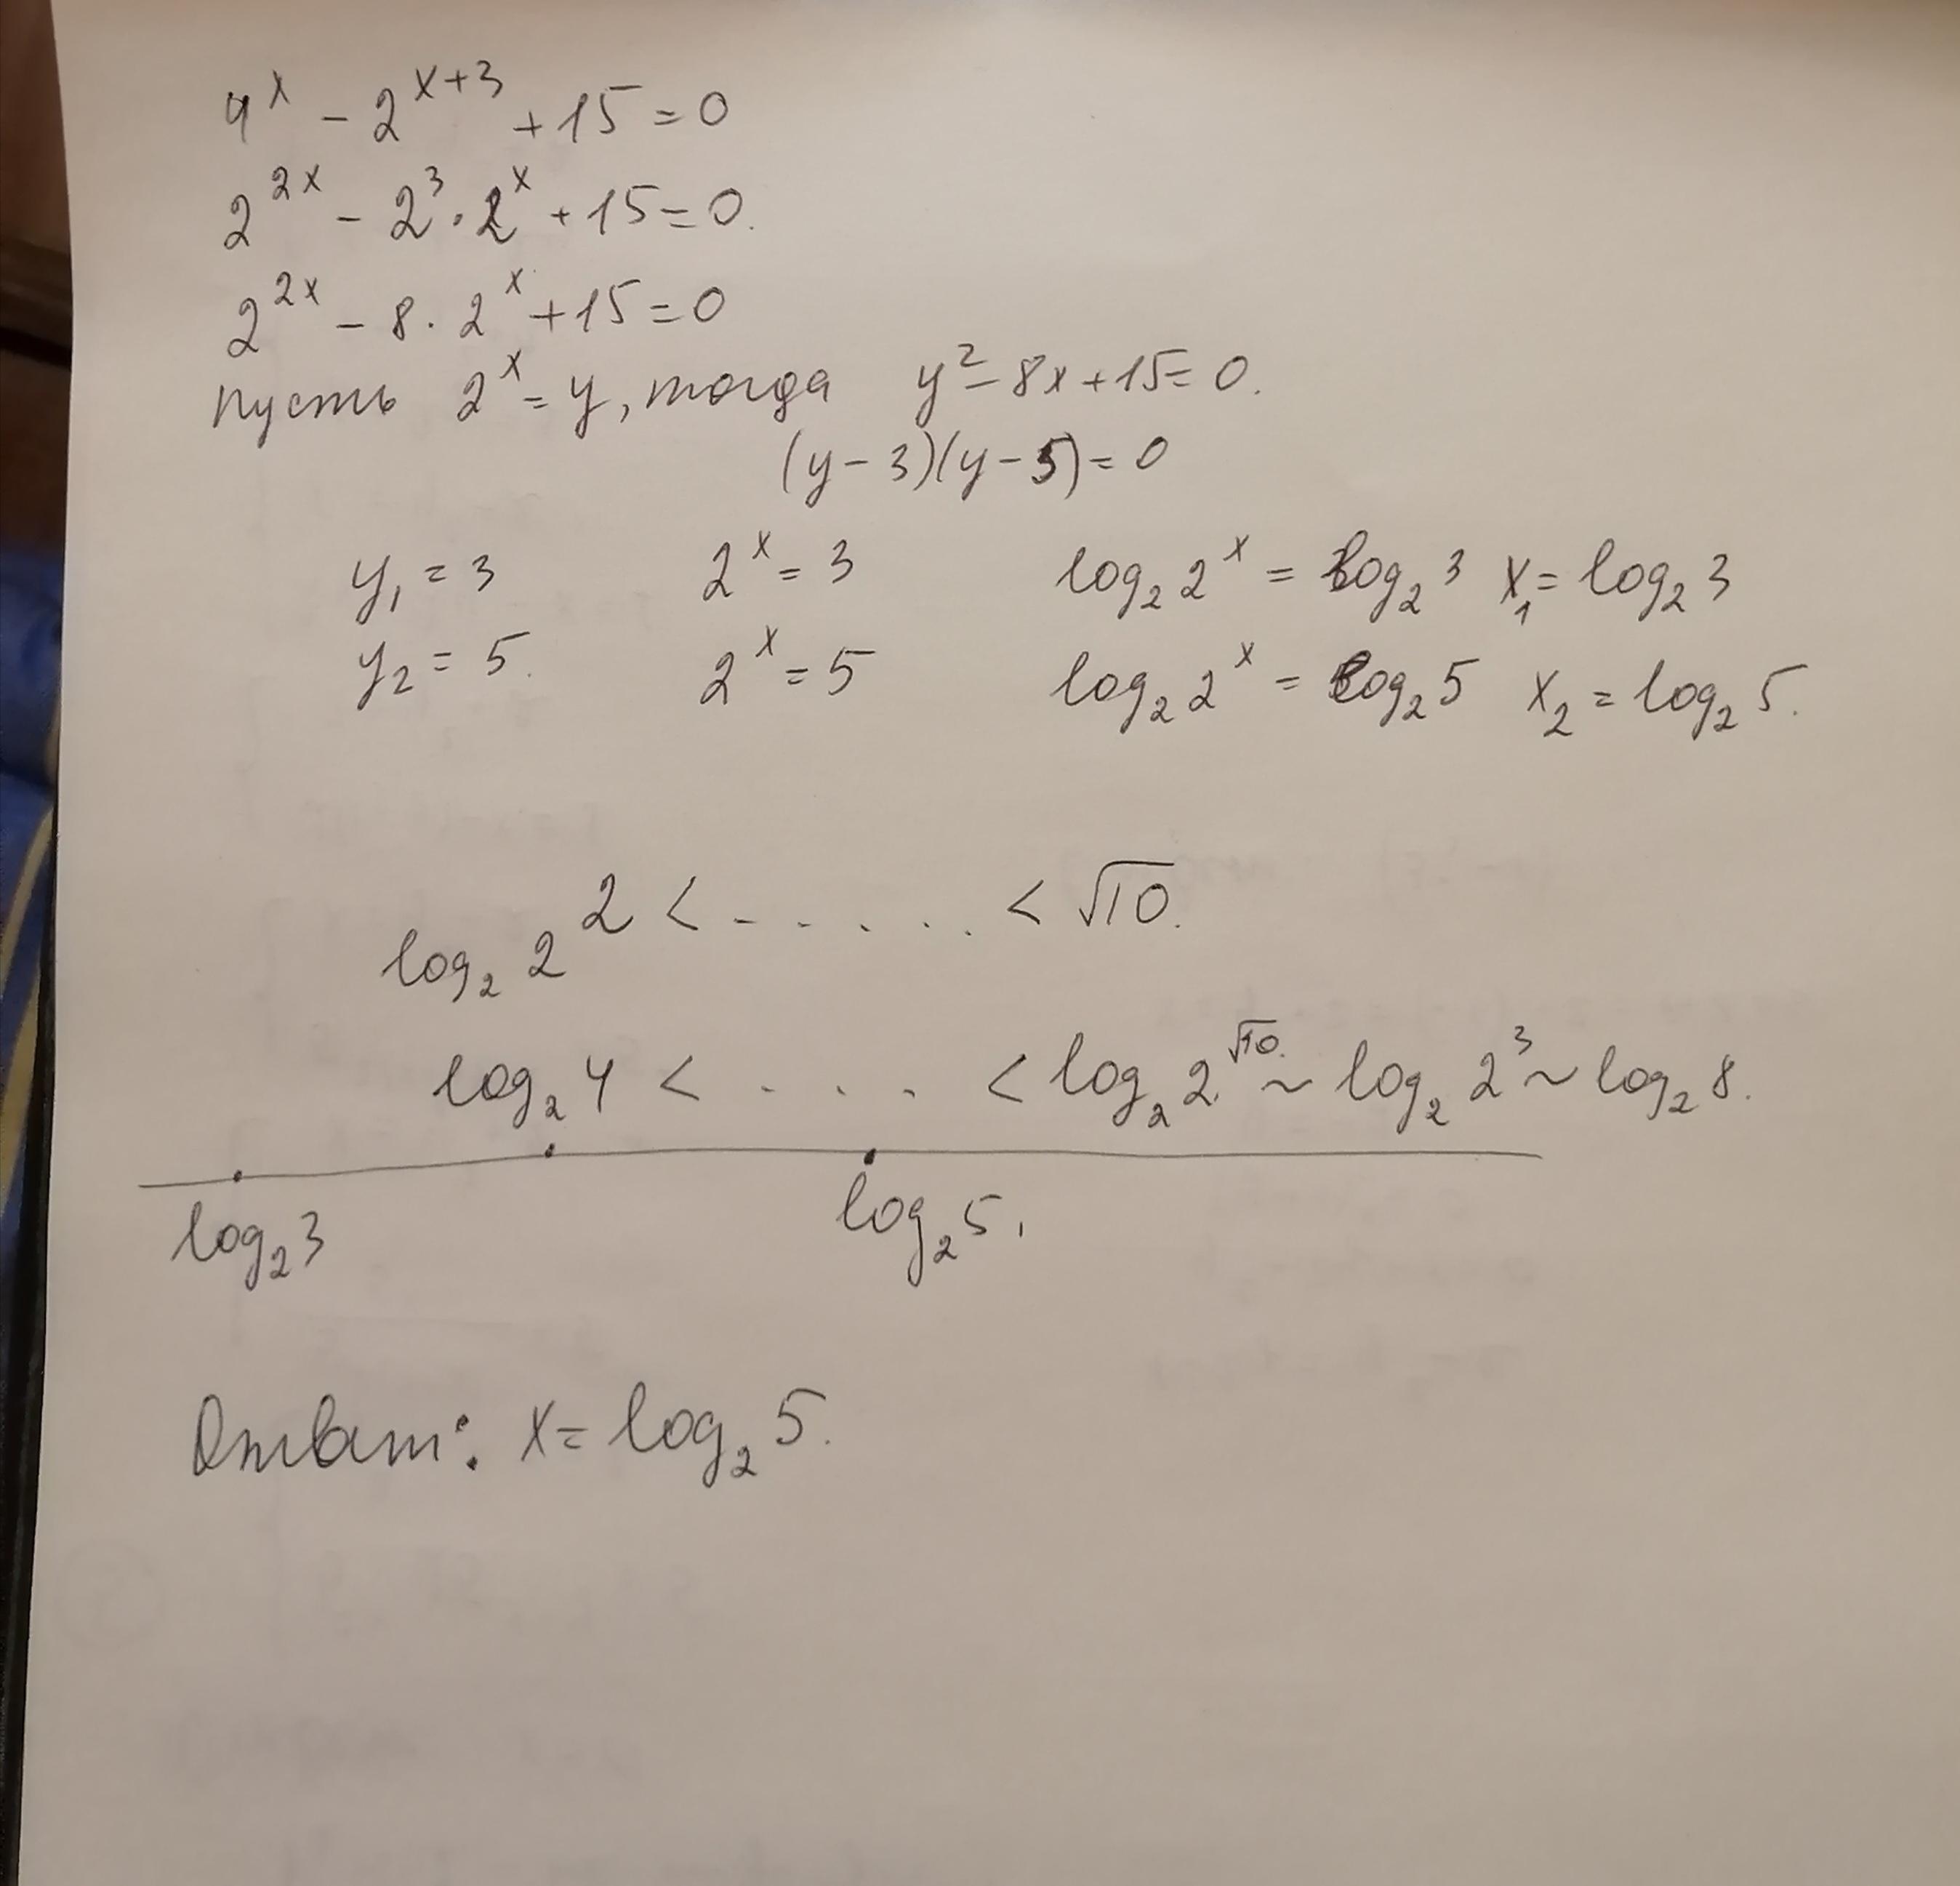 4^x - 2^{x+3} + 15 = 0
2^{2x} - 2^3 · 2^x + 15 = 0.
2^{2x} - 8 · 2^x + 15 = 0
Пусть 2^x = y, тогда y^2 - 8x + 15 = 0.
(y - 3)(y - 5) = 0
y_1 = 3 2^x = 3 log_2 2^x = log_2 3 x_1 = log_2 3
y_2 = 5. 2^x = 5 log_2 2^x = log_2 5 x_2 = log_2 5.
log_2 2^2 < - . . . . < √10.
log_2 4 < . . . < log_2 2^{√10.} ~ log_2 2^3 ~ log_2 8.
log_2 3 log_2 5,
Ответ: x = log_2 5.